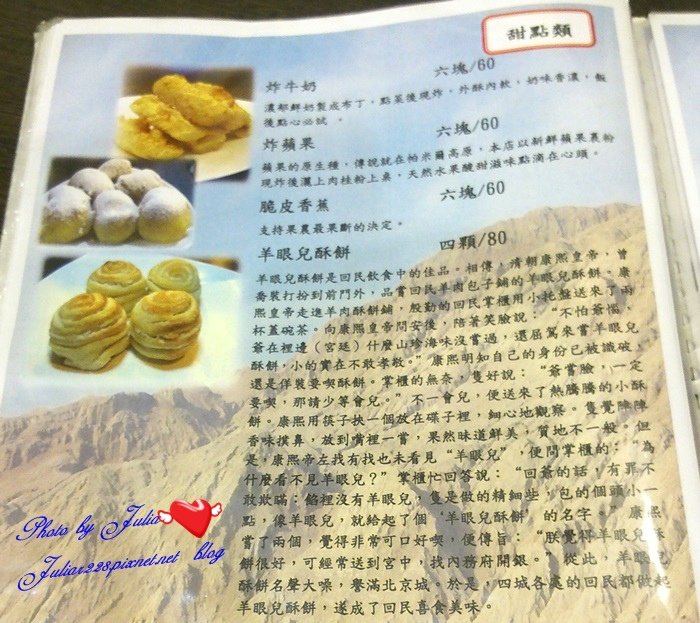 甜點類
炸牛奶 六塊/60
濃郁鮮奶製成布丁，點菜後現炸，外酥內軟，奶味香濃，飯
後點心必試。
炸蘋果 六塊/60
蘋果的原生種，傳說就在帕米爾高原，本店以新鮮蘋果裹粉
現炸後灑上肉桂粉上桌，天然水果酸甜滋味點滴在心頭。
脆皮香蕉 六塊/60
支持果農最果斷的決定。
羊眼兒酥餅 四顆/80
羊眼兒酥餅是回民飲食中的佳品。相傳，清朝康熙皇帝，曾
喬裝打扮到前門外，品嘗回民羊肉包子鋪的羊眼兒酥餅。康
熙皇帝走進羊肉酥餅鋪，殷勤的回民掌櫃用小托盤送來了兩
杯蓋碗茶。向康熙皇帝問安後，陪著笑臉說："不怕爺惱，
爺在裡邊（宮廷）什麼山珍海味沒嘗過，還屈駕來嘗羊眼兒
酥餅，小的實在不敢孝敬。"康熙明知自己的身份已被識破，
還是佯裝要喫酥餅。掌櫃的無奈，隻好說："爺嘗臉，一定
要喫，那請少等會兒。"不一會兒，便送來了熱騰騰的小酥
餅。康熙用筷子挾一個放在碟子裡，細心地觀察。隻覺陣陣
香味撲鼻，放到嘴裡一嘗，果然味道鮮美，質地不一般。但
是，康熙帝左找右找也未看見"羊眼兒"，便問掌櫃的："為
什麼看不見羊眼兒？"掌櫃忙回答說："回爺的話，有罪不
敢欺瞞：餡裡沒有羊眼兒，隻是做的精細些，包的個頭小一
點，像羊眼兒，就給起了個'羊眼兒酥餅'的名字。"康熙
嘗了兩個，覺得非常可口好喫，便傳旨："朕覺得羊眼兒酥
餅很好，可經常送到宮中，找內務府開銀。"從此，羊眼兒
酥餅名聲大噪，譽滿北京城。於是，四城各處的回民都做起
羊眼兒酥餅，遂成了回民喜食美味。
Photo by Julia
Juliar228.pixnet.net blog